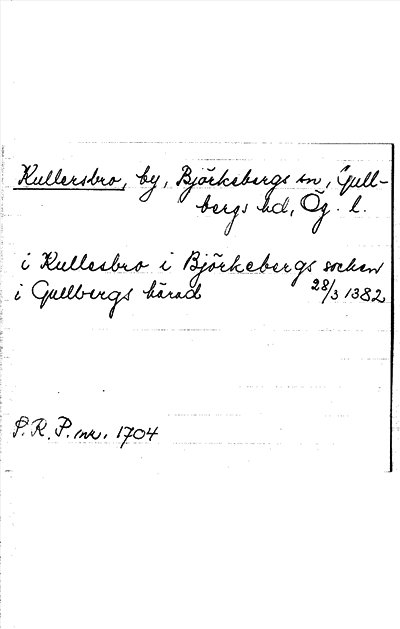 Kullersbro, by, Björkebergs sn, Gull-
bergs hd, Ög. l.
i Kullesbro i Björkebergs socken
i Gullbergs härad 28/3 1382
S.R.P. nr. 1704